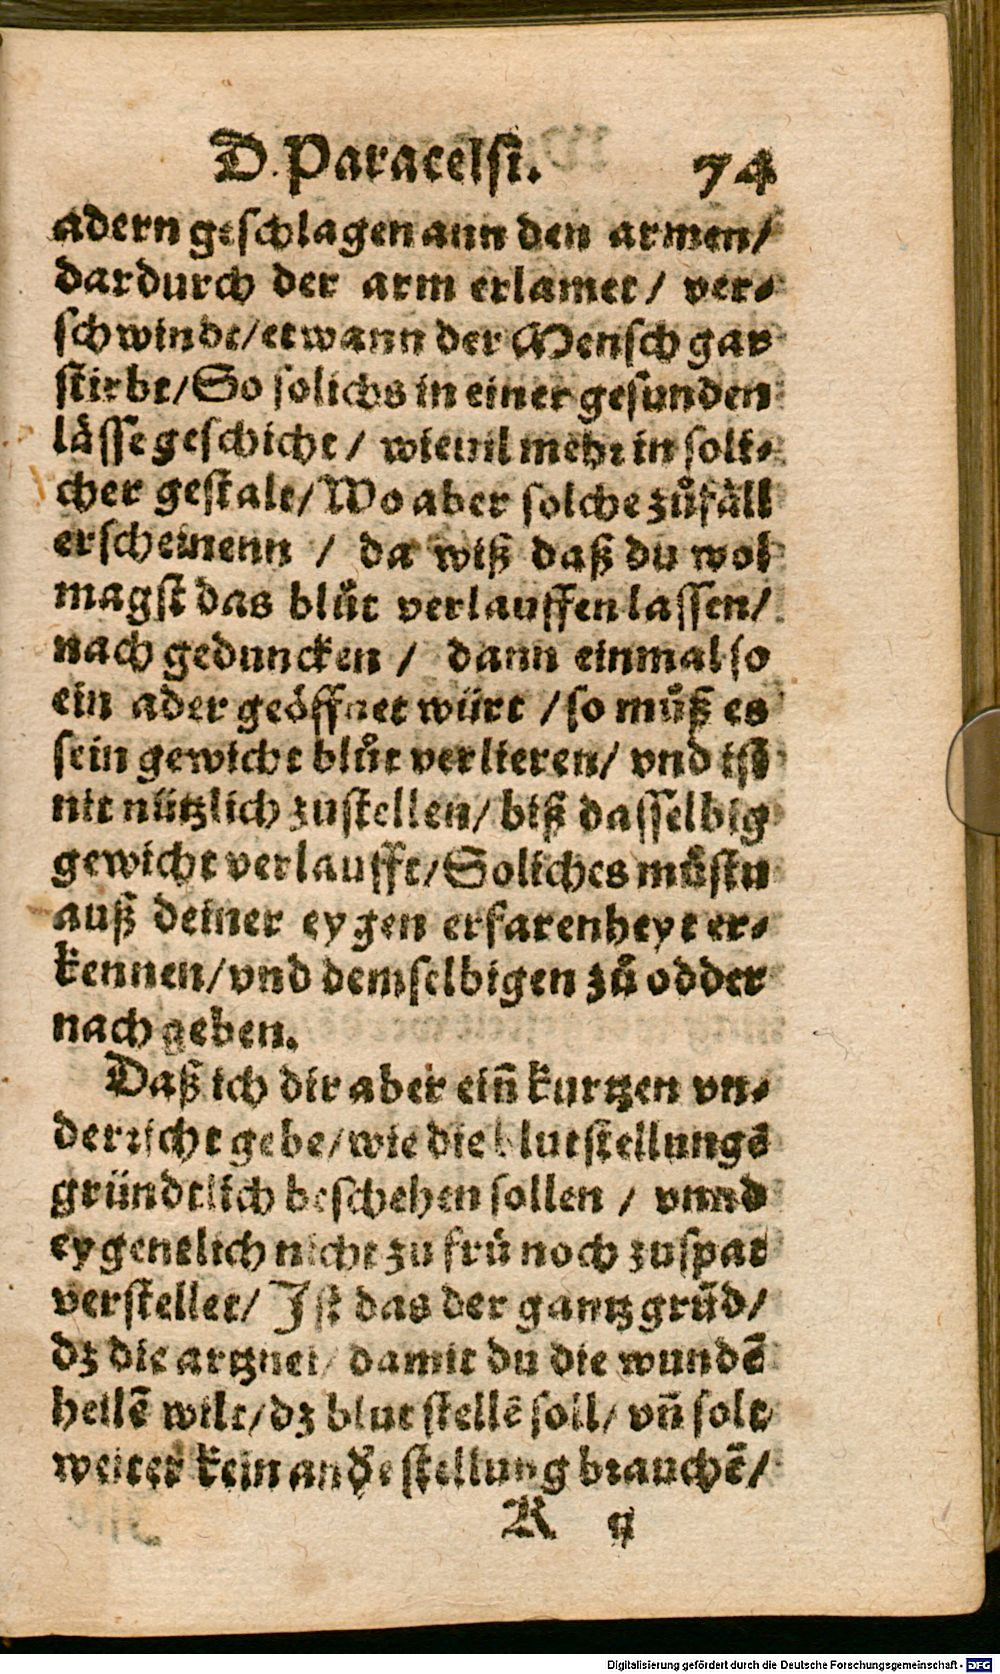 D. Paracelsi. 74
adern geschlagen ann den armen/
dardurch der arm erlamet / ver⸗
schwindt/etwann der Mensch gar
stirbt/So solichs in einer gesunden
lässe geschicht / wieuil mehr in soli⸗
cher gestalt/Wo aber solche zůfäll
erscheinenn / da wiß daß du wol
magst das blůt verlauffen lassen/
nach geduncken / dann einmal so
ein ader geöffnet würt /so můß es
sein gewicht blůt verlieren/ vnd ist
nit nützlich zustellen/ biß dasselbig
gewicht verlaufft/Soliches můstu
auß deiner eygen erfarenheyt er⸗
kennen/vnd demselbigen zů odder
nach geben.
Daß ich dir aber ein̄ kurtzen vn⸗
derricht gebe/wie die blutstellungē
gründtlich beschehen sollen / vnnd
eygentlich nicht zu frü noch zuspat
verstellet/ Ist das der gantz grūd/
dz die artznei/ damit du die wundē
heilē wilt/dz blut stellē soll/ vn̄ solt
weiter kein andè stellung brauchē/
K ij
Digitalisierung gefördert durch die Deutsche Forschungsgemeinschaft - DFG